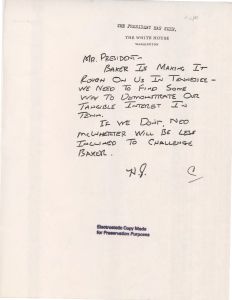 THE PRESIDENT HAS SEEN.
THE WHITE HOUSE
WASHINGTON
MR. PRESIDENT-
BAKER IS MAKING IT
ROUGH ON US IN TENNESSEE -
WE NEED TO FIND SOME
WAY TO DEMONSTRATE OUR
TANGIBLE INTEREST IN
TENN.
IF WE DON'T, NED
MCWHERTER WILL BE LESS
INCLINED TO CHALLENGE
BAKER.
H.J.
C
Electrostatic Copy Made
for Preservation Purposes